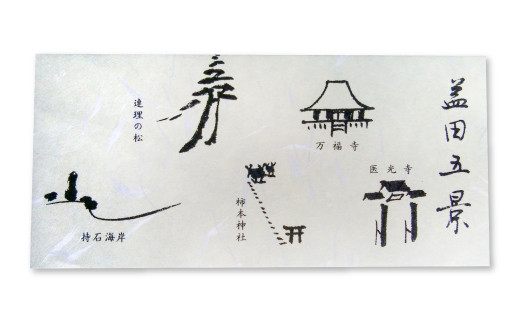 益田五景
医光寺
万福寺
柿本神社
連理の松
持石海岸